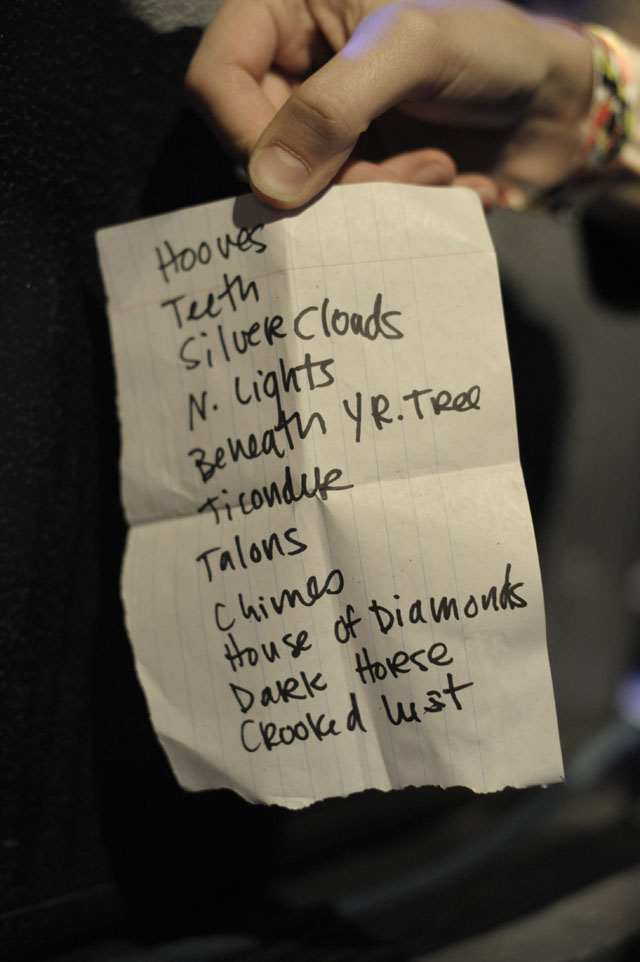 Hooves
Teeth
Silver Clouds
N. Lights
Beneath YR. Tree
Ticonder
Talons
Chimes
House of Diamonds
Dark Horse
Crooked Lust